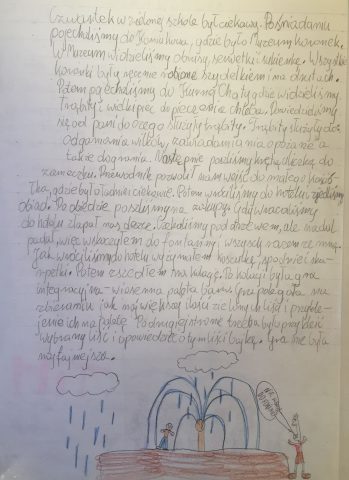 Czwartek w zielonej szkole był ciekawy. Po śniadaniu
pojechaliśmy do Koniakowa, gdzie było Muzeum koronek.
W Muzeum widzieliśmy obrusy, serwetki i sukienkę. Wszystkie
koronki były ręcznie robione szydełkiem i na drutach.
Potem pojechaliśmy do Kurnej Chaty gdzie widzieliśmy
trąbity i wielki piec do pieczenia chleba. Dowiedzieliśmy
się od pani do czego służyły trąbity. Trąbity służyły do
odganiania wilków, zawiadamiania o pożarze a
także do grania. Następnie poszliśmy krętą dróżką do
zameczku. Przewodnik pozwolił nam wejść do małego kośció-
łka, gdzie było ładnie i ciekawie. Potem wróciliśmy do hotelu i zjedliśmy
obiad. Po obiedzie poszliśmy na zakupy. Gdy wracaliśmy
do hotelu złapał nas deszcz. Czekaliśmy pod drzewem, ale nadal
padał, więc wskoczyłem do fontanny i wszyscy razem ze mną.
Jak wróciliśmy do hotelu wyżymałem koszulkę, spodnie i ska-
rpetki. Potem zszedłem na kolację. Po kolacji była gra
integracyjna - wiosenna paleta barw. Gra polegała na
zbieraniu jak największej ilości zielonych liści i przykle-
jenie ich na paletę. Po drugiej stronie trzeba było przykleić
wybrany liść i opowiedzieć o tym liściu bajkę. Gra nie była
najfajniejsza.